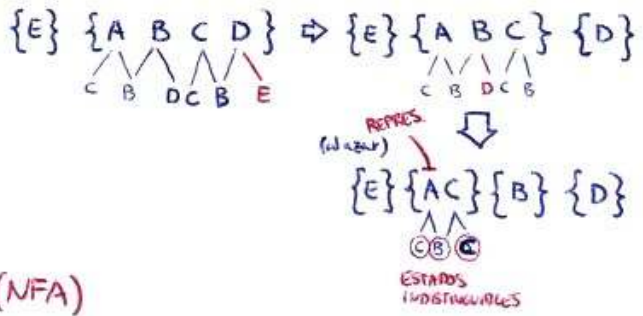 {E} {A B C D} ⇒ {E} {A B C} {D}
C B D C B E
C B D C B
REPRES.
(al azar)
{E} {A C} {B} {D}
C B C
ESTADOS
INDISTINGUIBLES
(NFA)